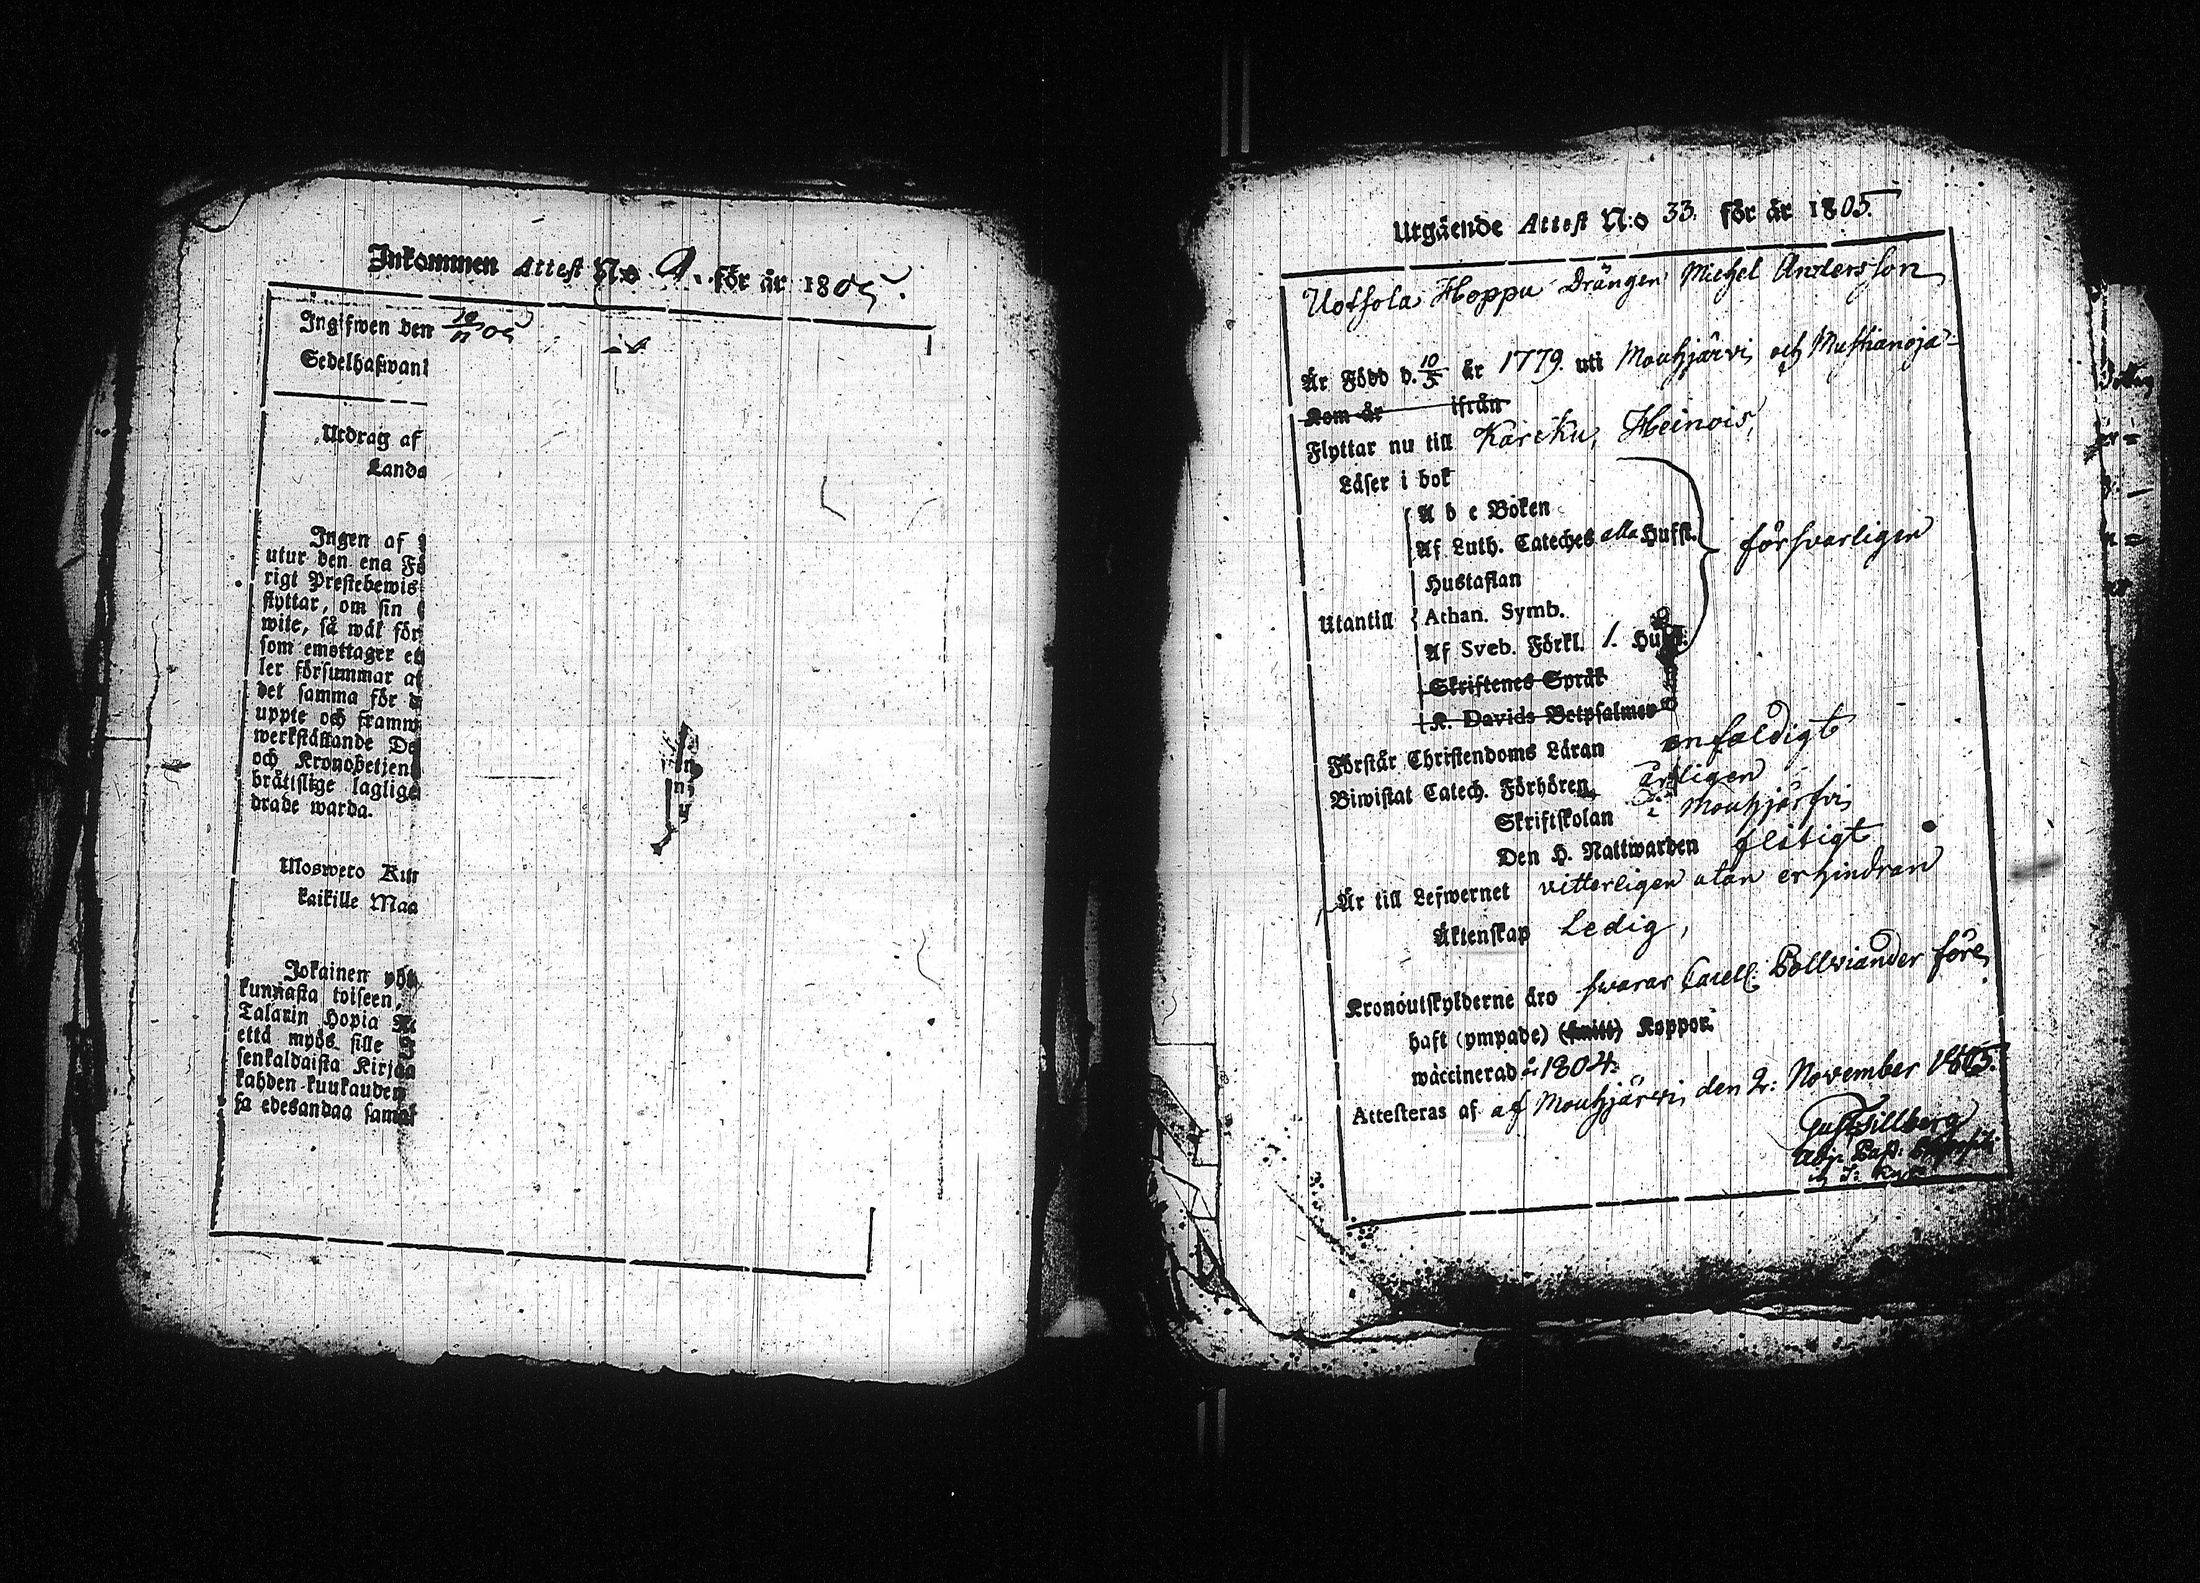 Inkommen Attest N:o 9. för år 1805.
Ingifwen den 10/11 05
Sedelhafwan
Utdrag af
Lands
Ingen af
utur den ena Fö
rigt Prestebewis
flyttar, om sin
wite, så wäl för
som emottager en
ler försummar at
det samma för
uppte och framm
werkställande De
och Kronobetjen
bråtislige laglige
drade warda.
Ulosweto Kun
kaikille Maa
Jokainen yhd
kunnasta toiseen,
Talarin Hopia
että myös sille
senkaldaista Kirjaa
kahden kuukauden
sa edesandaa sama
Utgående Attest N:o 33. för år 1805.
Uotsola Hoppu Drängen Michel Andersson
Är Född d. 10/5 år 1779. uti Mouhjärvi och Mustianoja
Kom år ifrån
Flyttar nu till Karcku, Heinois,
Läser i bok
A b c Boken
Af Luth. Cateches alla Hufst. försvarligen
Hustaflan
Utantill Athan. Symb.
Af Sveb. Förkl. 1. Hufst.
Skriftenes Språk
K. Davids Botpsalmer
Förstår Christendoms Läran enfaldigt
Biwistat Catech. Förhören årligen
Skriftskolan i Mouhjärfvi
Den H. Nattwarden flitigt
Är till Lefwernet vitterligen utan erhindran
Äktenskap Ledig,
Kronoutskylderne äro swarar Capell. Pollviander före
haft (ympade) (smitt) Koppor.
waccinerad år 1804.
Attesteras af af Mouhjärvi den 2: November 1805.
Gust. Tillberg
Adj. Past: